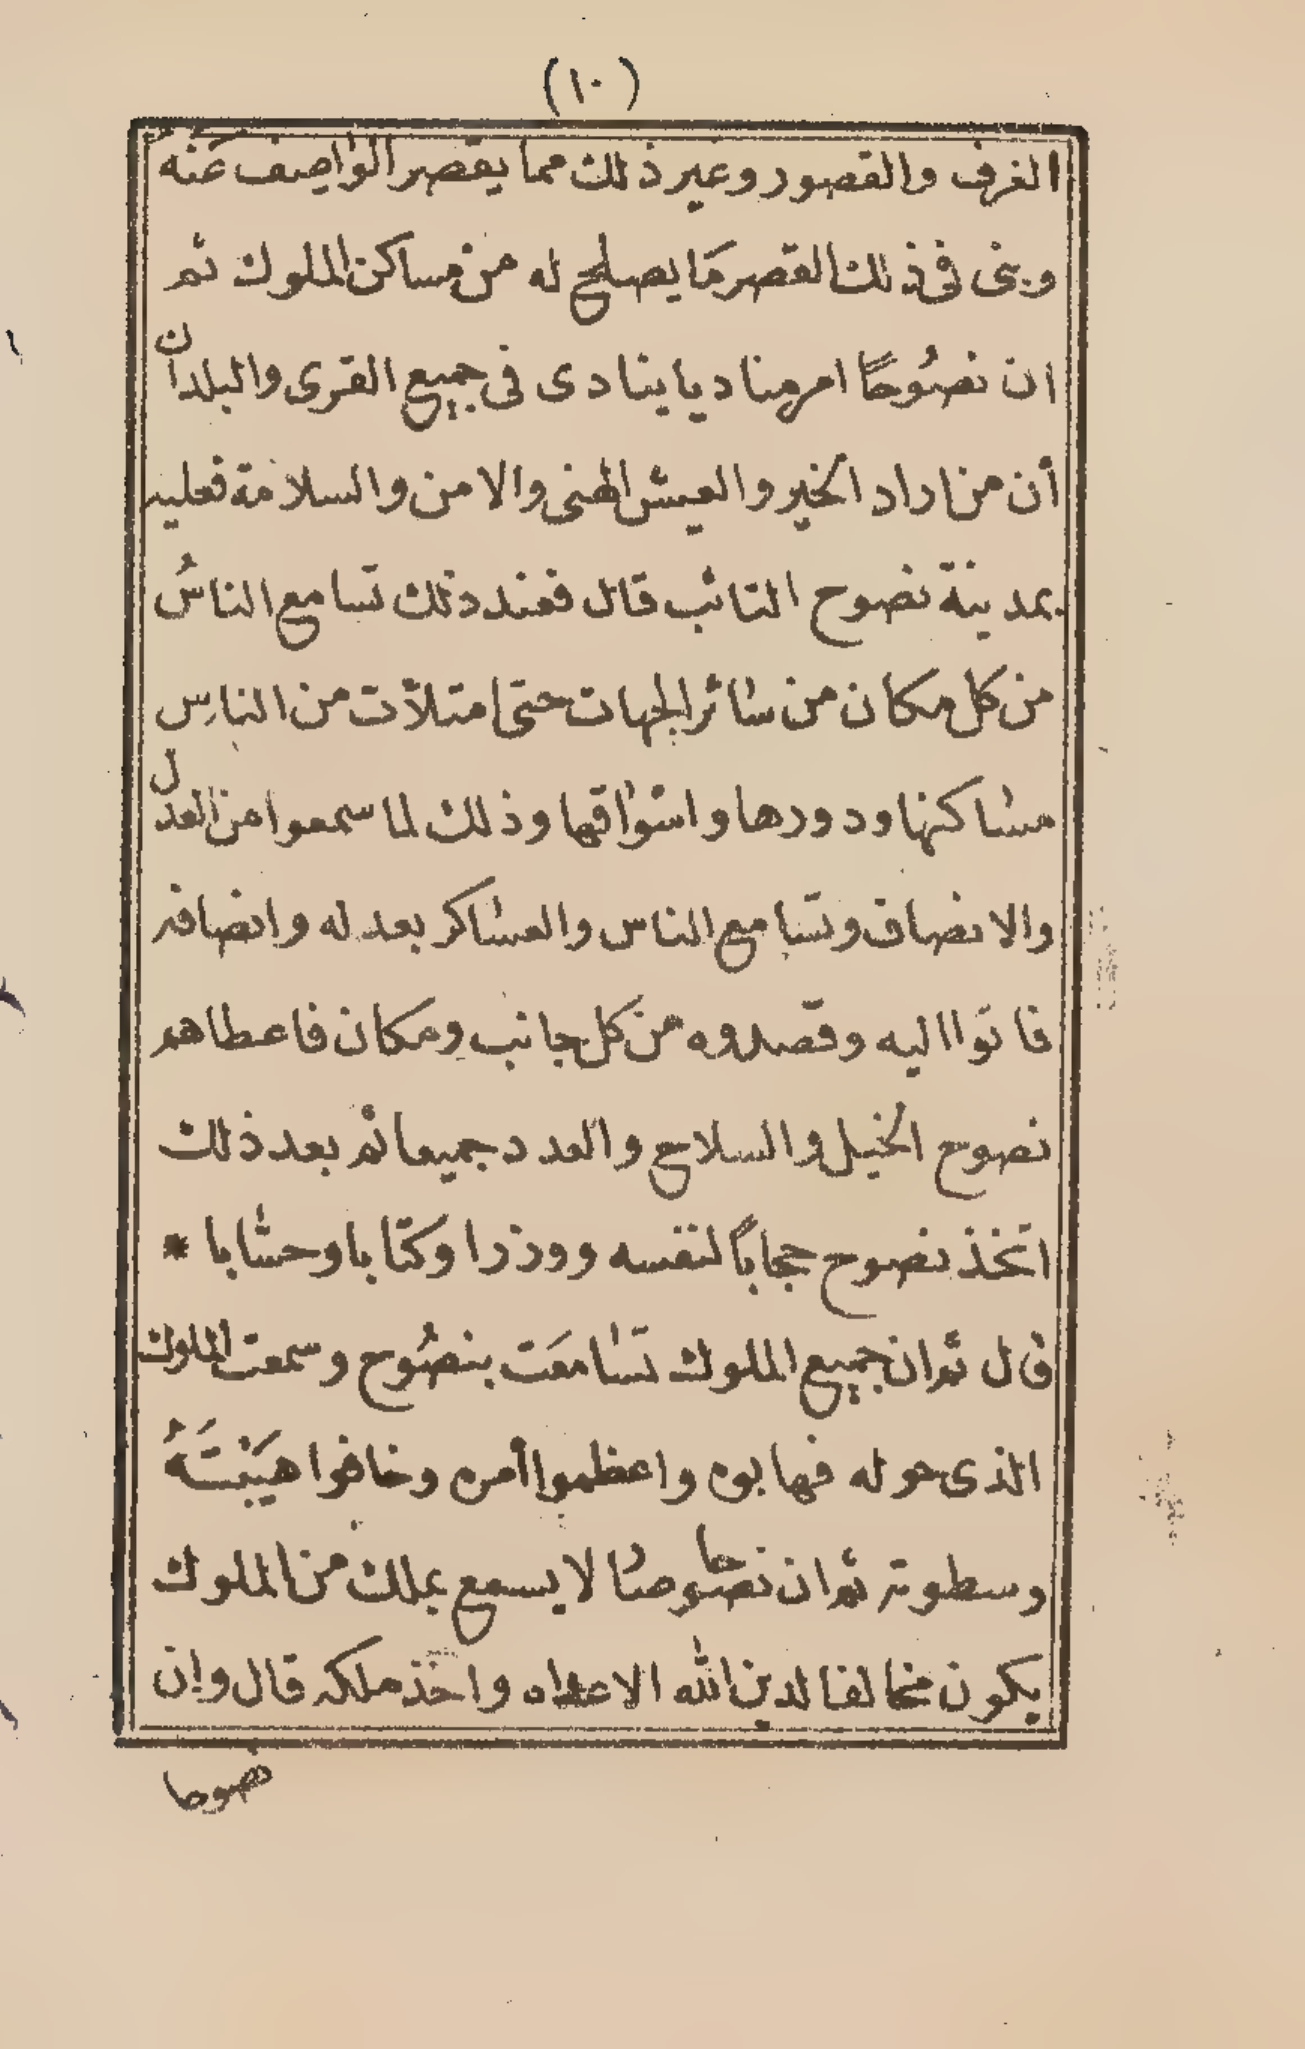 (١٠)
الغرف والقصور وغير ذلك مما يقصر الواصف عنه
وبنى فى ذلك القصر ما يصلح له من مساكن الملوك ثم
ان نصُوحًا امر مناديا ينادى فى جميع القرى والبلدان
أن من اراد الخير والعيش الهنى والامن والسلامة فعليه
بمدينة نصوح التائب قال فعند ذلك تسامع الناسُ
من كل مكان من سائر الجهات حتى امتلأت من الناسِ
مساكنها ودورها واسواقها وذلك لما سمعوا من العدل
والانصاف وتسامع الناس والعساكر بعدله وانصافه
فاتوا اليه وقصدوه من كل جانب ومكان فاعطاهم
نصوح الخيل والسلاح والعدد جميعا ثم بعد ذلك
اتخذ نصوح حجاباً لنفسه ووزرا وكتابا وحسّابا *
قال ثم ان جميع الملوك تسامعَت بنصُوح وسمعت الملوك
الذى حوله فهابوه واعظموا أمره وخافوا هَيْبَتَهُ
وسطوته ثم ان نصوحا صا لا يسمع بملك من الملوك
يكون مخالفا لدين الله الا عاداه واخذ ملكه قال وان
نصوحا